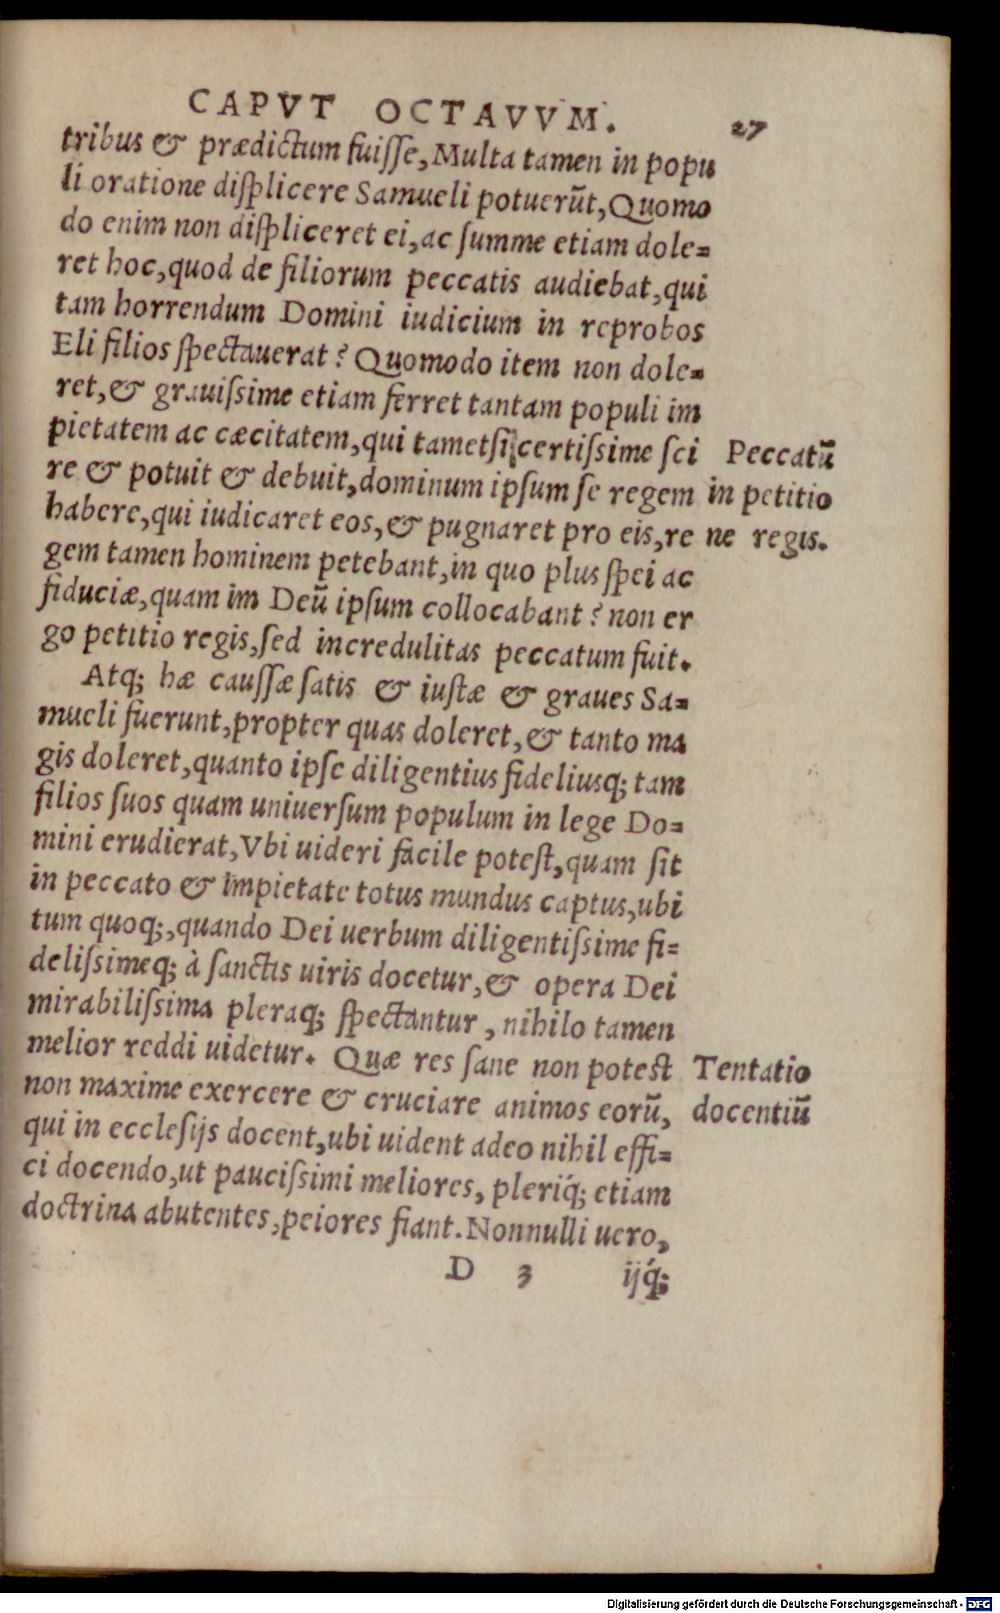 CAPVT OCTAVVM. 27
tribus & prædictum fuiſſe, Multa tamen in popu
li oratione diſplicere Samueli potuerūt, Quomo
do enim non diſpliceret ei, ac ſumme etiam dole=
ret hoc, quod de filiorum peccatis audiebat, qui
tam horrendum Domini iudicium in reprobos
Eli filios ſpectauerat? Quomodo item non dole=
ret, & grauiſsime etiam ferret tantam populi im
pietatem ac cæcitatem, qui tametſi certiſsime ſci
re & potuit & debuit, dominum ipſum ſe regem
habere, qui iudicaret eos, & pugnaret pro eis, re
gem tamen hominem petebant, in quo plus ſpei ac
fiduciæ, quam im Deū ipſum collocabant? non er
go petitio regis, ſed incredulitas peccatum fuit.
Peccatū
in petitio
ne regis.
Atq; hæ cauſſæ ſatis & iuſtæ & graues Sa=
mueli fuerunt, propter quas doleret, & tanto ma
gis doleret, quanto ipſe diligentius fideliusq; tam
filios ſuos quam uniuerſum populum in lege Do=
mini erudierat, Vbi uideri facile poteſt, quam ſit
in peccato & impietate totus mundus captus, ubi
tum quoq;, quando Dei uerbum diligentiſsime fi=
deliſsimeq; à ſanctis uiris docetur, & opera Dei
mirabiliſsima pleraq; ſpectantur, nihilo tamen
melior reddi uidetur. Quæ res ſane non potest
non maxime exercere & cruciare animos eorū,
qui in eccleſijs docent, ubi uident adeo nihil effi=
ci docendo, ut pauciſsimi meliores, pleriq́; etiam
doctrina abutentes, peiores fiant. Nonnulli uero,
Tentatio
docentiū
D 3 ijq́;
Digitalisierung gefördert durch die Deutsche Forschungsgemeinschaft - DFG